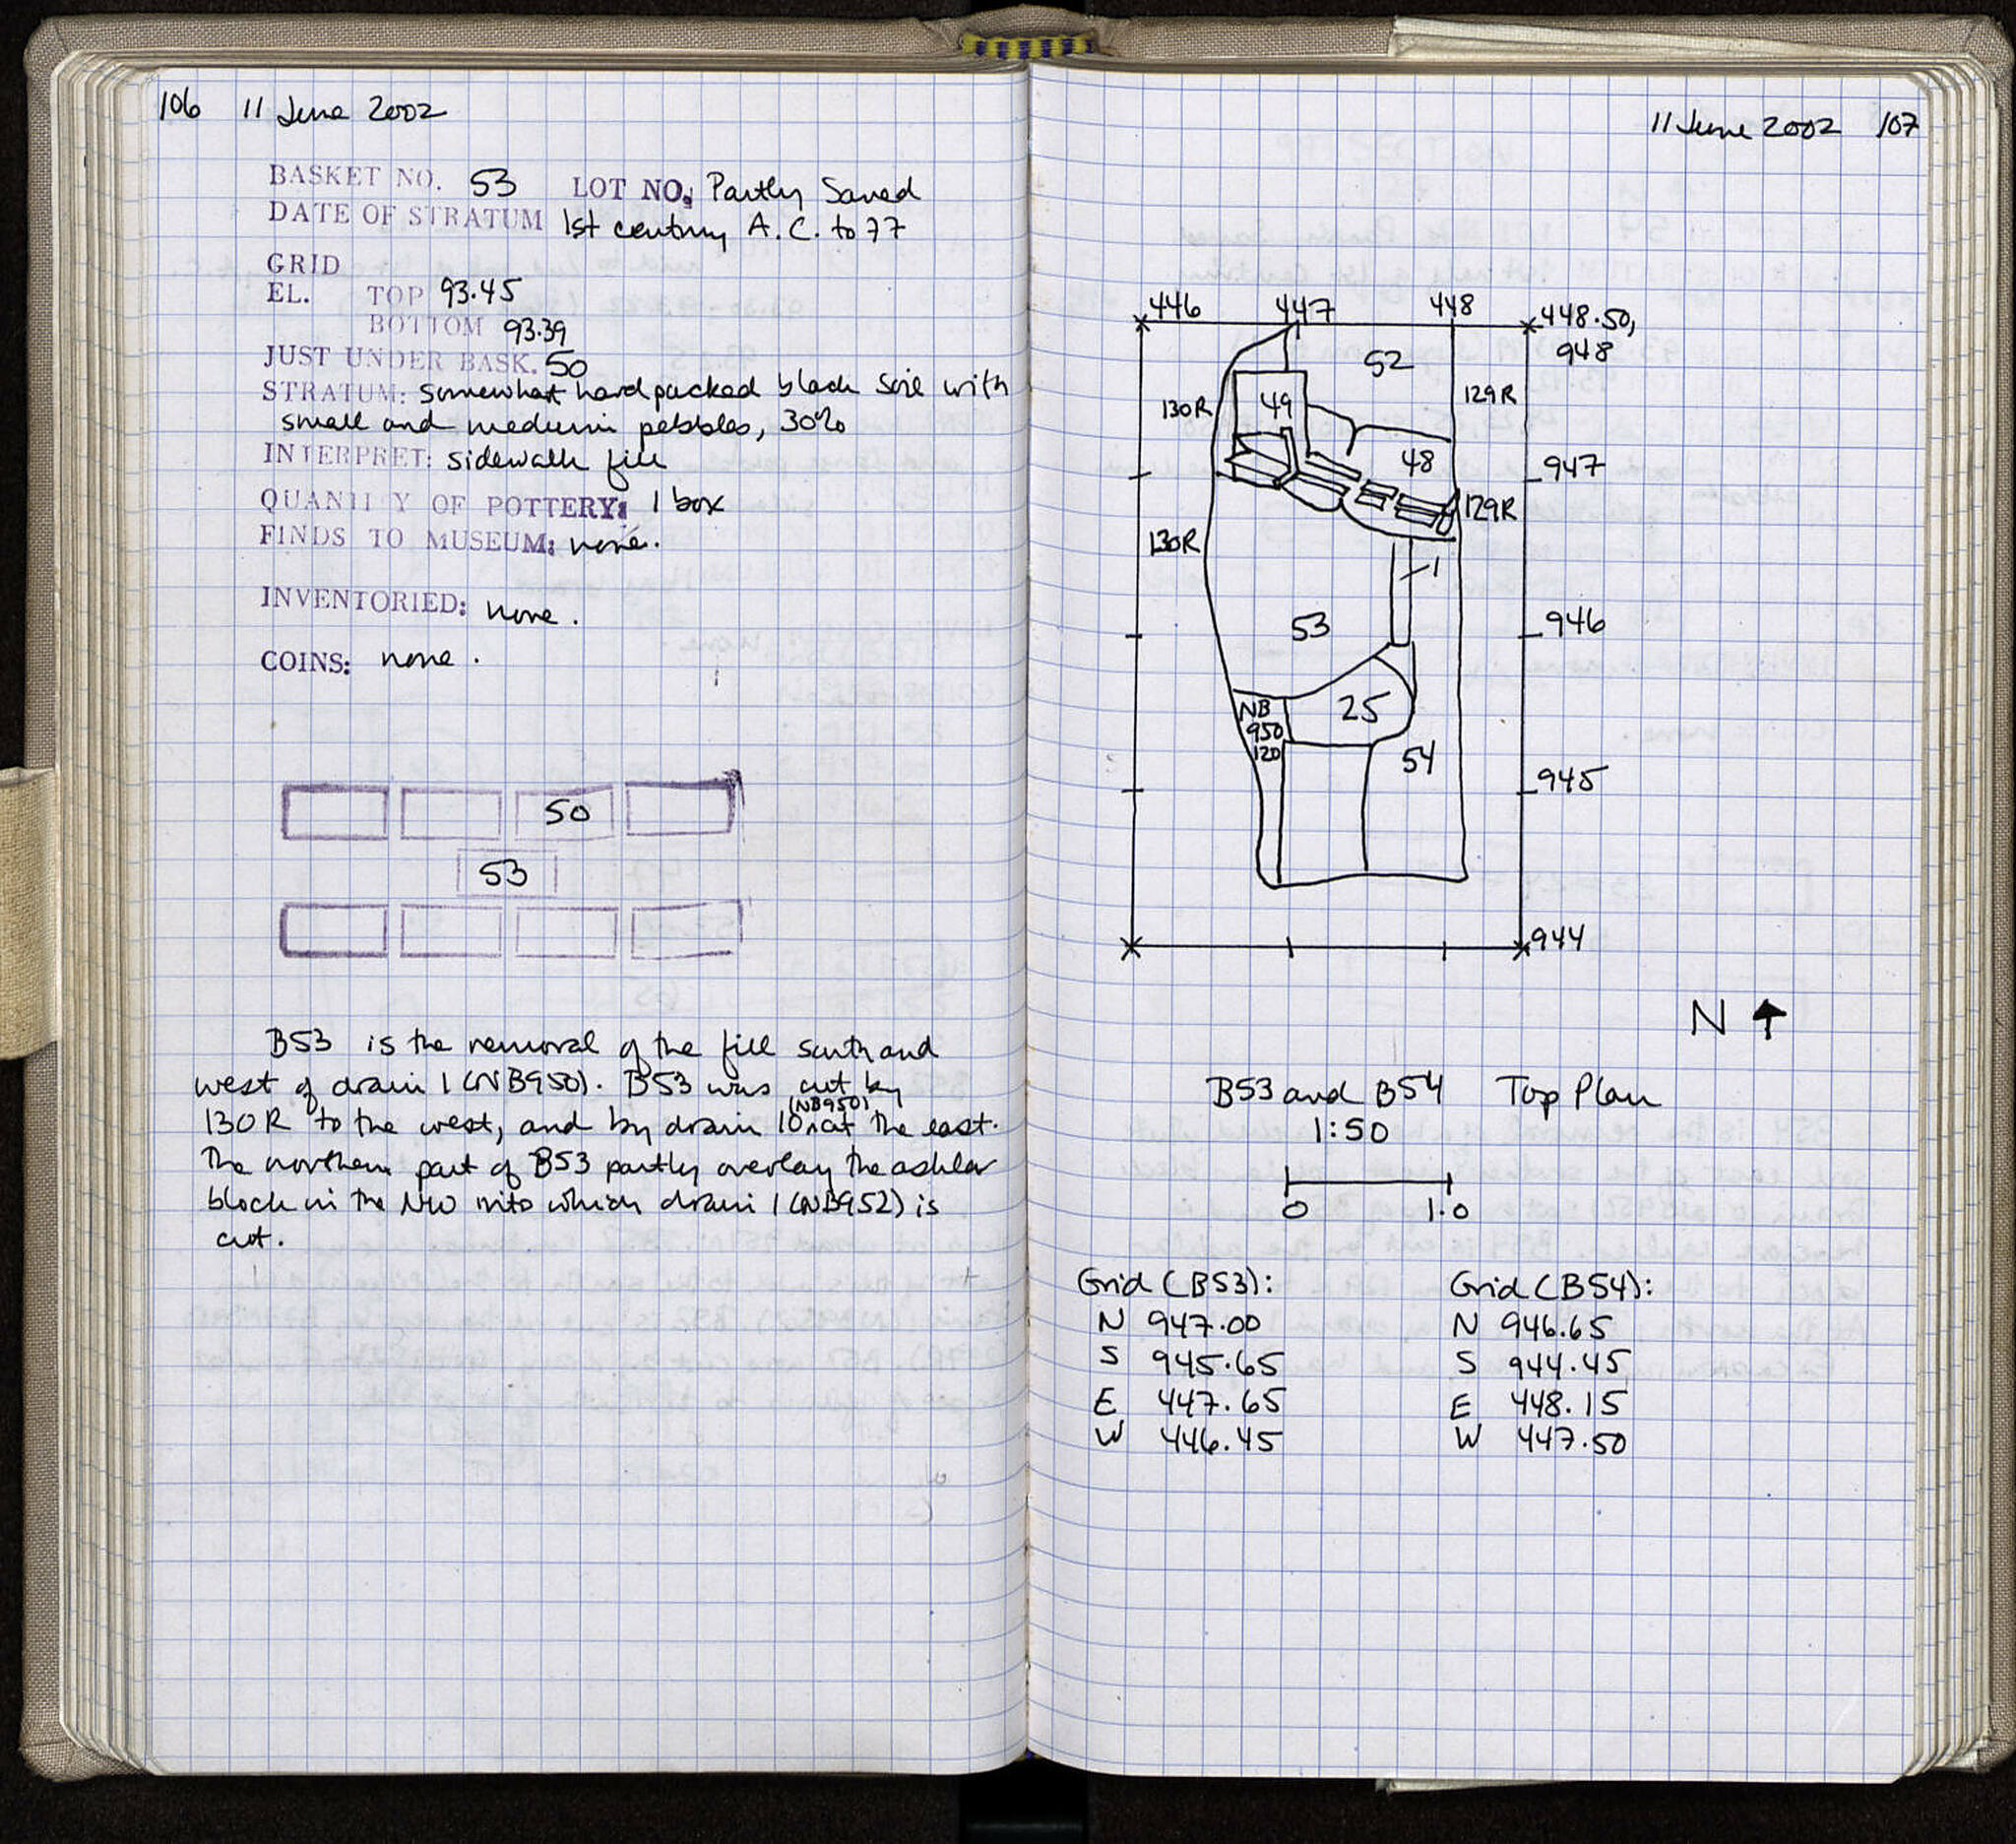 106 11 June 2002
BASKET NO. 53 LOT NO. Partly Saved
DATE OF STRATUM 1st century A.C. to 77
GRID
EL. TOP 93.45
BOTTOM 93.39
JUST UNDER BASK. 50
STRATUM: somewhat hard packed black soil with
small and medium pebbles, 30%
INTERPRET: sidewalk fill
QUANTITY OF POTTERY: 1 box
FINDS TO MUSEUM: none.
INVENTORIED: none.
COINS: none.
50
53
B53 is the removal of the fill south and
west of drain 1 (NB950). B53 was cut by
(NB950)
130R to the west, and by drain 10 at the east.
The northern part of B53 partly overlay the ashlar
block in the NW into which drain 1 (NB952) is
cut.
11 June 2002 107
446 447 448 448.50,
948
52
130R 49 129R
48 947
129R
130R
1
53 946
NB
950
120
25
54 945
944
N
B53 and B54 Top Plan
1:50
0 1.0
Grid (B53): Grid (B54):
N 947.00 N 946.65
S 945.65 S 944.45
E 447.65 E 448.15
W 446.45 W 447.50